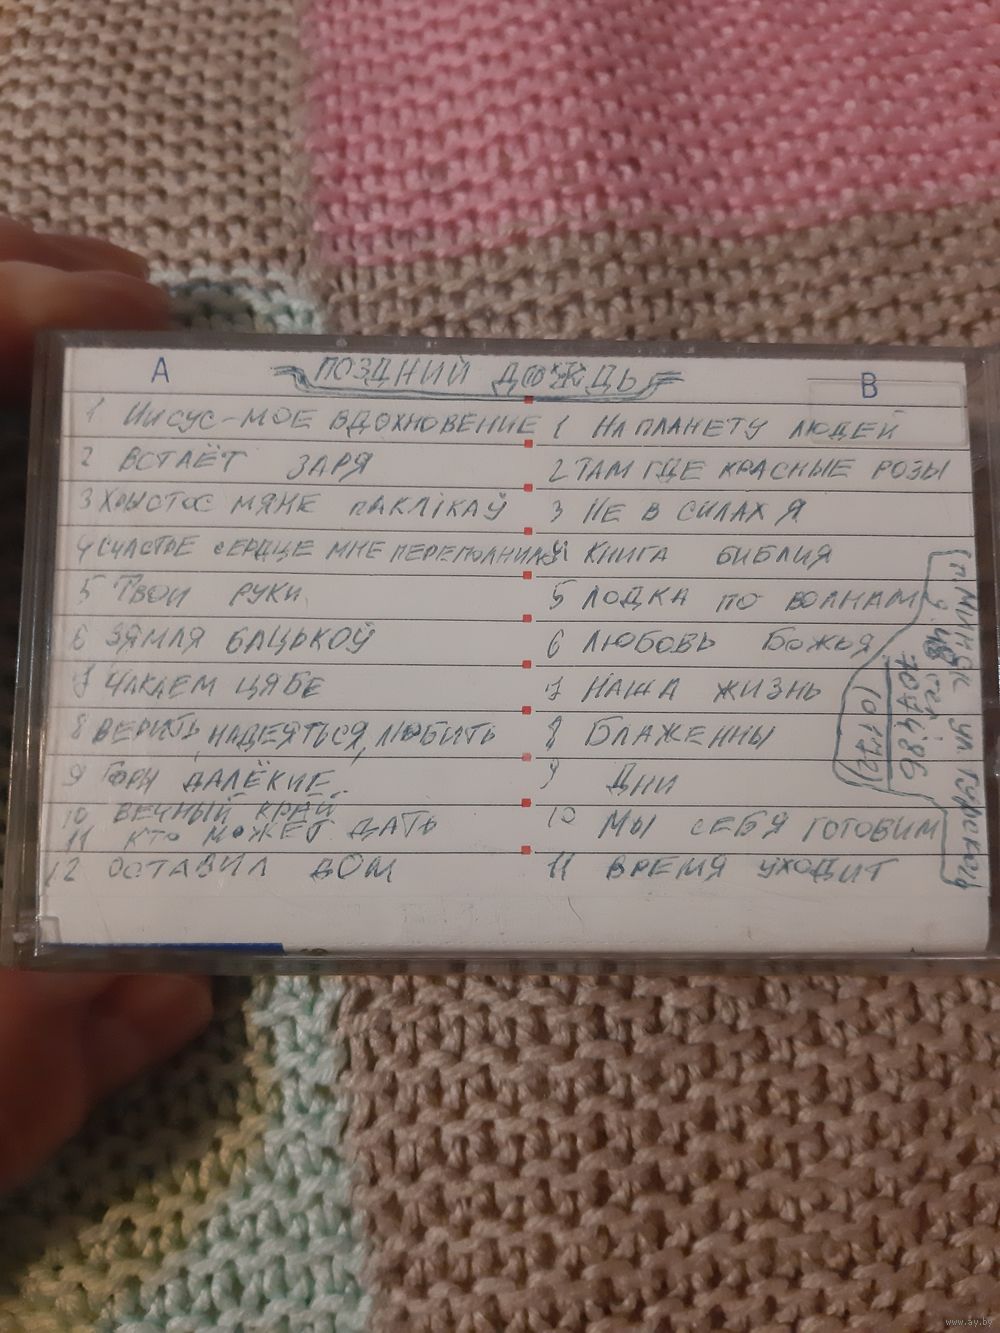 А
ПОЗДНИЙ ДОЖДЬ
В
1 ИИСУС-МОЕ ВДОХНОВЕНИЕ
2 ВСТАЁТ ЗАРЯ
3 ХРЫСТОС МЯНЕ ПАКЛIКАЎ
4 СЧАСТЬЕ СЕРДЦЕ МНЕ ПЕРЕПОЛНИЛО
5 ТВОИ РУКИ
6 ЗЯМЛЯ БАЦЬКОЎ
7 ЧАКАЕМ ЦЯБЕ
8 ВЕРИТЬ, НАДЕЯТЬСЯ, ЛЮБИТЬ
9 ГОРЫ ДАЛЁКИЕ
10 ВЕЧНЫЙ КРАЙ
11 КТО МОЖЕТ ДАТЬ
12 ОСТАВИЛ ДОМ
1 НА ПЛАНЕТУ ЛЮДЕЙ
2 ТАМ ГДЕ КРАСНЫЕ РОЗЫ
3 НЕ В СИЛАХ Я
4 КНИГА БИБЛИЯ
5 ЛОДКА ПО ВОЛНАМ
6 ЛЮБОВЬ БОЖЬЯ
7 НАША ЖИЗНЬ
8 БЛАЖЕННЫ
9 ДНИ
10 МЫ СЕБЯ ГОТОВИМ
11 ВРЕМЯ УХОДИТ
г. МИНСК ул
тел
7074186
(0172)
www.ay.by